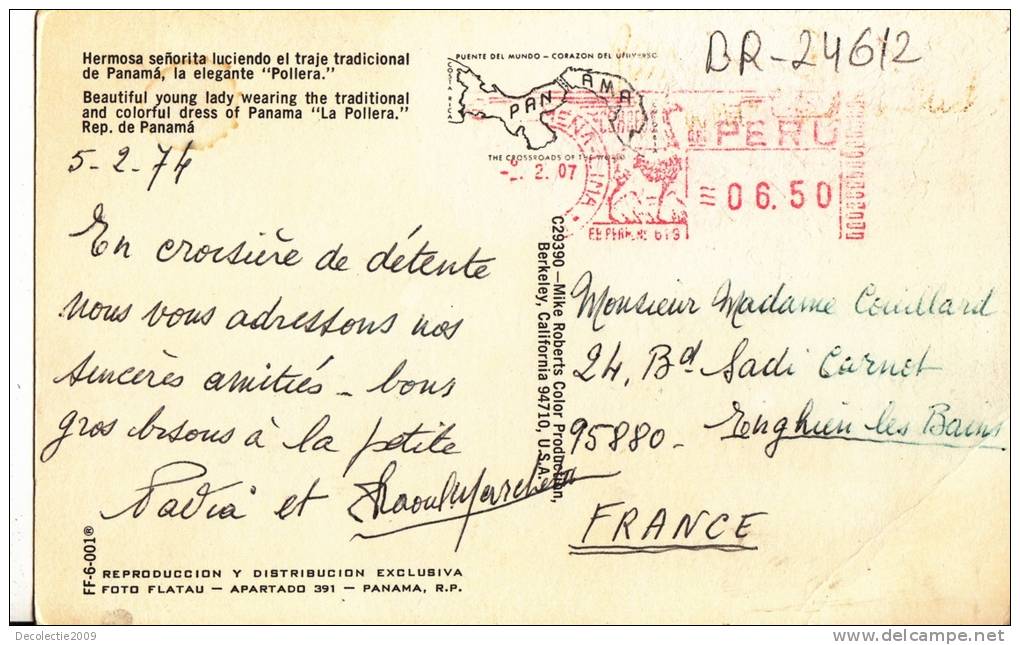 Hermosa señorita luciendo el traje tradicional
de Panamá, la elegante "Pollera."
Beautiful young lady wearing the traditional
and colorful dress of Panama "La Pollera."
Rep. de Panamá
PUENTE DEL MUNDO – CORAZON DEL UNIVERSO
COSTA RICA
PANAMA
THE CROSSROADS OF THE WORLD
BR-24612
PERU
2.07
LIMA
=06.50
5-2-74
En croisière de détente
nous vous adressons nos
sincères amitiés – bons
gros bisous à la petite
et Raoul
C29390—Mike Roberts Color Production,
Berkeley, California 94710, U.S.A.
Monsieur Madame Couillard
24, Bd Sadi Carnot
95880 - Enghien les Bains
FRANCE
FF-6-001®
REPRODUCCION Y DISTRIBUCION EXCLUSIVA
FOTO FLATAU — APARTADO 391 — PANAMA, R.P.
Decolectie2009
www.delcampe.net